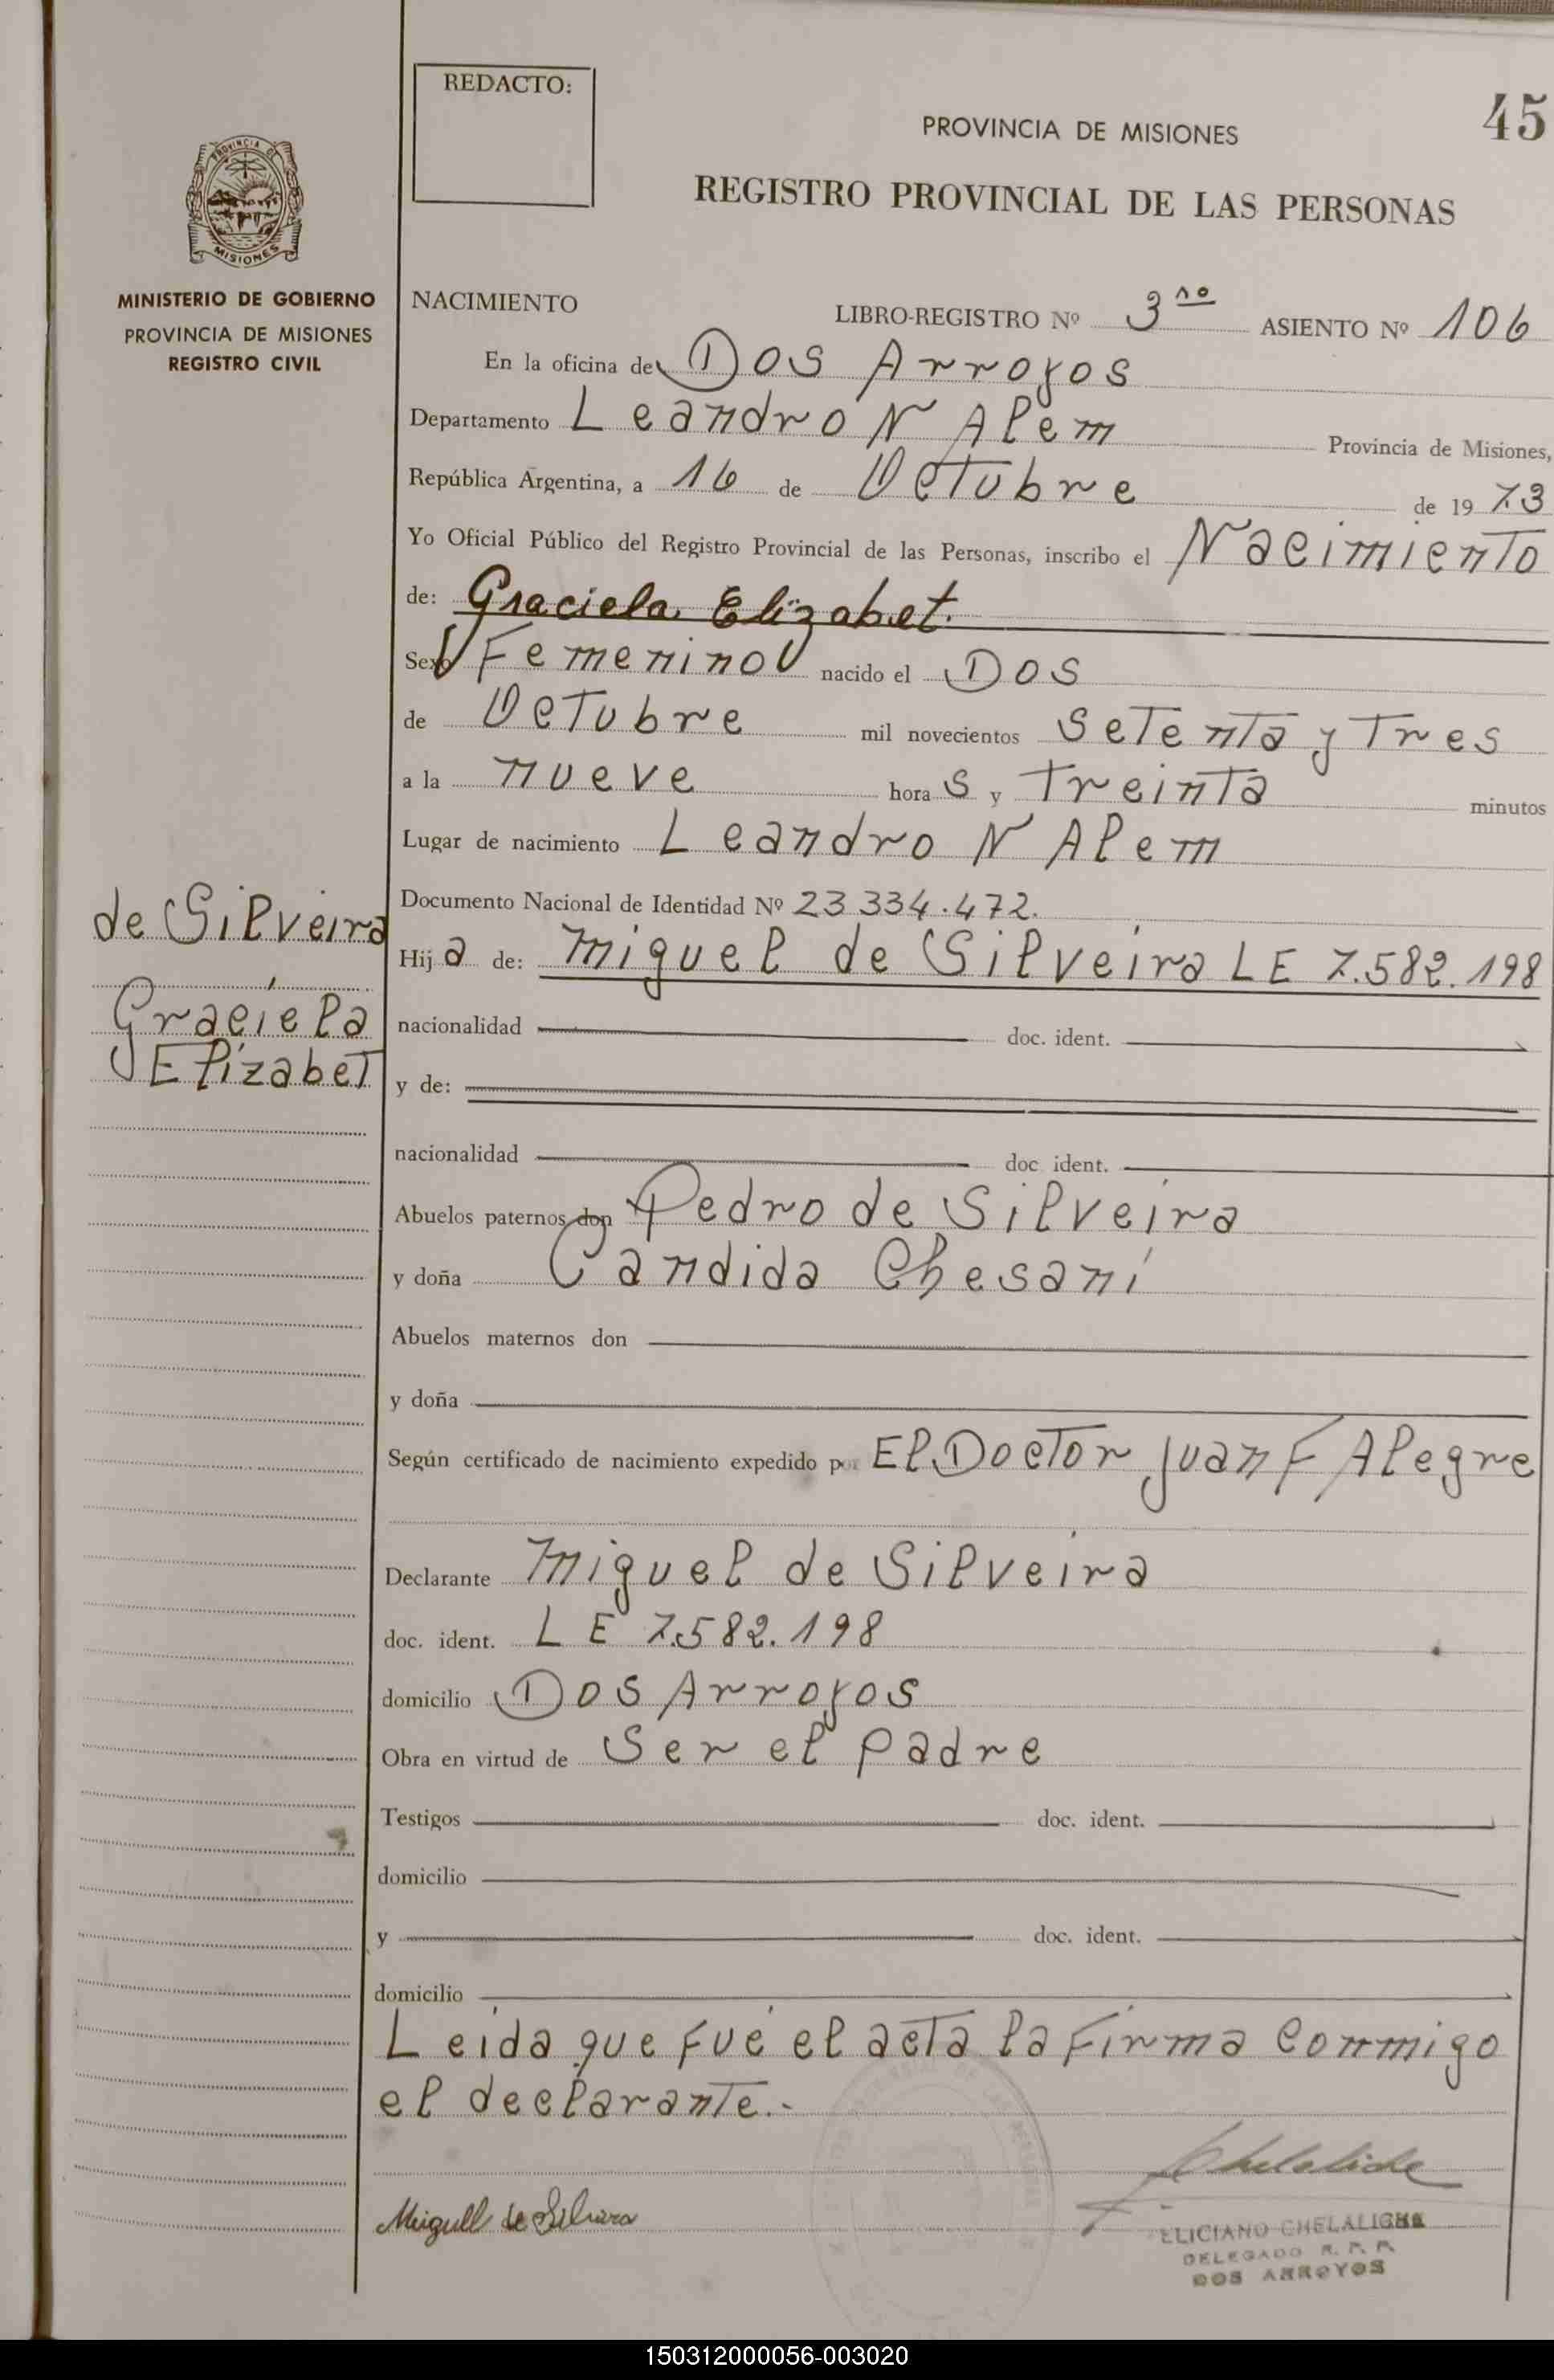 REDACTO:
45
PROVINCIA DE MISIONES
REGISTRO PROVINCIAL DE LAS PERSONAS
PROVINCIA DE
MISIONES
MINISTERIO DE GOBIERNO
PROVINCIA DE MISIONES
REGISTRO CIVIL
NACIMIENTO LIBRO-REGISTRO Nº 3ro ASIENTO Nº 106
En la oficina de Dos Arroyos
Departamento Leandro N Alem Provincia de Misiones,
República Argentina, a 16 de Octubre de 1973
Yo Oficial Público del Registro Provincial de las Personas, inscribo el Nacimiento
de: Graciela Elizabet.
Sexo Femenino nacido el Dos
de Octubre mil novecientos setenta y Tres
a la nueve horas y treinta minutos
Lugar de nacimiento Leandro N Alem
Documento Nacional de Identidad Nº 23.334.472.
de Silveira
Graciela
Elizabet
Hija de: Miguel de Silveira LE 7.582.198
nacionalidad doc. ident.
y de:
nacionalidad doc ident.
Abuelos paternos don Pedro de Silveira
y doña Candida Chesani
Abuelos maternos don
y doña
Según certificado de nacimiento expedido por El Doctor Juan F Alegre
Declarante Miguel de Silveira
doc. ident. LE 7.582.198
domicilio Dos Arroyos
Obra en virtud de Ser el padre
Testigos doc. ident.
domicilio
y doc. ident.
domicilio
Leida que fué el acta la firma conmigo
el declarante.-
Miguel de Silveira
FELICIANO CHELALICHE
DELEGADO R. P. P.
DOS ARROYOS
150312000056-003020